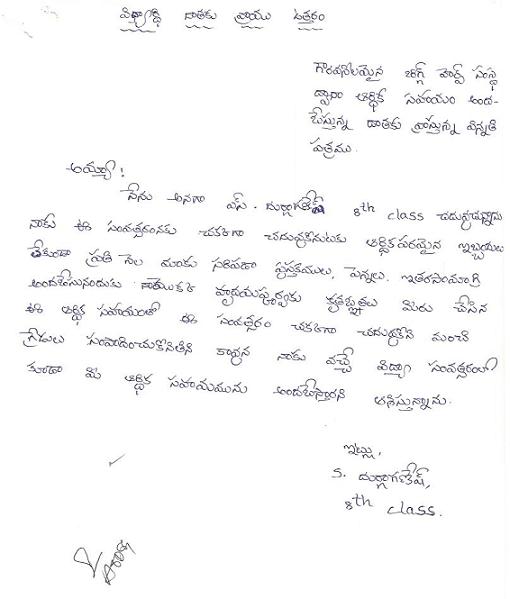 విద్యార్థి దాతకు వ్రాయు ఉత్తరం
గౌరవనీలమైన బర్గ్ హోప్ సంస్థ
ద్వారా ఆర్థిక సహయం అంద-
చేస్తున్న దాతకు వ్రాస్తున్న విన్నతి
పత్రము.
అయ్యా!
నేను అనగా ఎస్. దుర్గాగణేష్ 8th class చదువుచున్నాను
నాకు ఈ సంవత్సరంనకు చక్కగా చదువుకొనుటకు ఆర్థికపరమైన ఇబ్బందులు
లేకుండా ప్రతి నెల మాకు సరిపడా పుస్తకములు, పెన్నులు, ఇతరసామాగ్రి
అందచేసినందుకు దాతలకు హృదయపూర్వకు కృతజ్ఞతలు మీరు చేసిన
ఈ ఆర్థిక సహాయంతో ఈ సంవత్సరం చక్కగా చదువుకొని మంచి
గ్రేడులు సంపాదించుకొనితిని కావున నాకు వచ్చే విద్యా సంవత్సరంలో
కూడా మీ ఆర్థిక సహాయమును అందచేస్తారని ఆశిస్తున్నాను.
ఇట్లు,
S. దుర్గాగణేష్,
8th class.